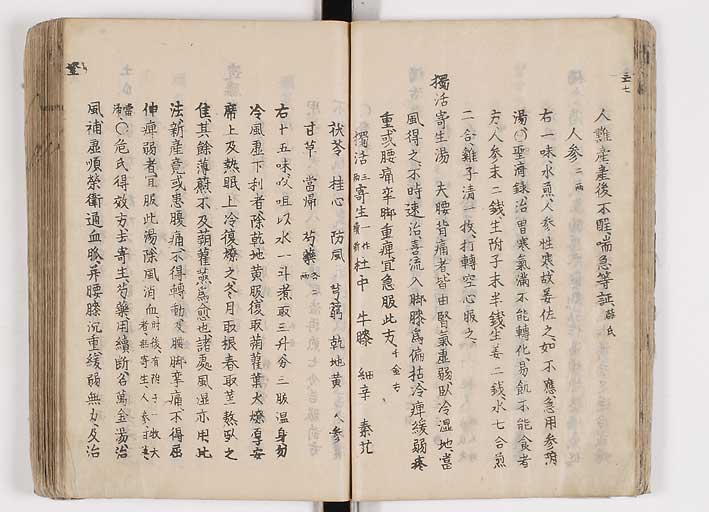 人難産産後不醒喘急等証 薛氏
人参 二両
右一味水煎人参性寒故姜佐之如不應急用参附
湯〇聖済録治胃寒氣満不能轉化易飢不能食者
方人参末二銭生附子末半銭生姜二銭水七合煎
二合雞子清一枚打轉空心服之
獨活寄生湯 夫腰背痛者皆由腎氣虚弱臥冷湿地當
風得之不時速治喜流入脚膝為偏枯冷痺緩弱疼
重或腰痛攣脚重痺宜急服此方 千金方
獨活 三両 寄生 一作續断 杜中 牛膝 細辛 秦艽
茯苓 桂心 防風 芎藭 乾地黄 人参
甘草 當帰 芍藥 各二両
右十五味㕮咀以水一斗煮取三升分三服温身勿
冷風虚下利者除乾地黄服後取蒴藋葉火燎厚安
席上及熱眠上冷復燎之冬月取根春取莖熬臥之
佳其餘薄熨不及蒴藋蒸為愈也諸處風湿亦用此
法新産竟或患腹痛不得轉動及腰脚攣痛不得屈
伸痺弱者宜服此湯除風消血
〇危氏得效方去寄生芍藥用續断名萬金湯治
風補虚順榮衛通血脈并腰膝沉重緩弱無力及治
三七